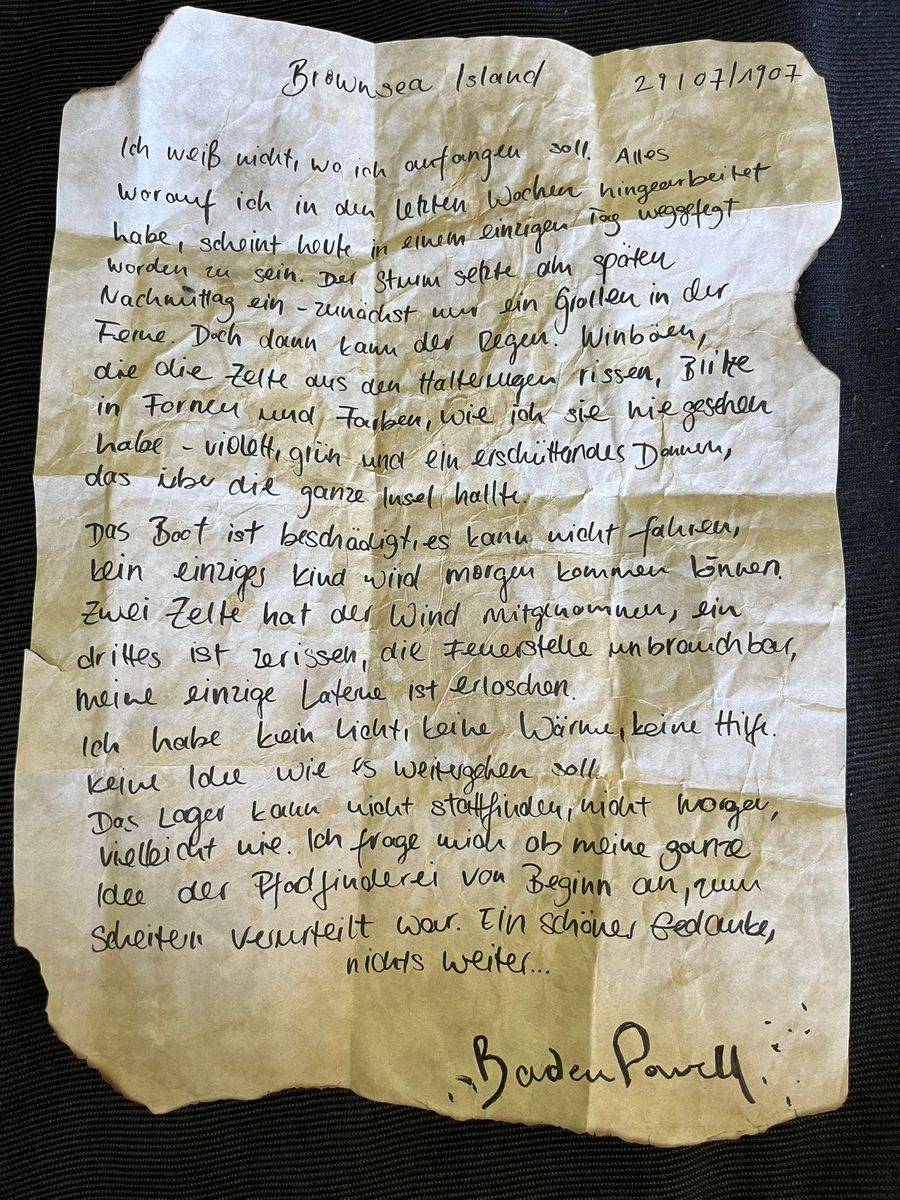 Brownsea Island 29/07/1907
Ich weiß nicht, wo ich anfangen soll. Alles
worauf ich in den letzten Wochen hingearbeitet
habe, scheint heute in einem einzigen Tag weggefegt
worden zu sein. Der Sturm setzte am späten
Nachmittag ein - zunächst nur ein Grollen in der
Ferne. Doch dann kam der Regen. Winböen,
die die Zelte aus den Halterungen rissen, Blitze
in Formen und Farben, wie ich sie nie gesehen
habe - violett, grün und ein erschütterndes Donnern,
das über die ganze Insel hallte.
Das Boot ist beschädigt, es kann nicht fahren,
kein einziges Kind wird morgen kommen können.
Zwei Zelte hat der Wind mitgenommen, ein
drittes ist zerissen, die Feuerstelle unbrauchbar,
meine einzige Laterne ist erloschen.
Ich habe kein Licht, keine Wärme, keine Hilfe.
keine Idee wie es weitergehen soll.
Das Lager kann nicht stattfinden, nicht morgen,
vielleicht nie. Ich frage mich ob meine ganze
Idee der Pfadfinderei von Beginn an, zum
Scheitern verurteilt war. Ein schöner Gedanke,
nichts weiter...
Baden Powell